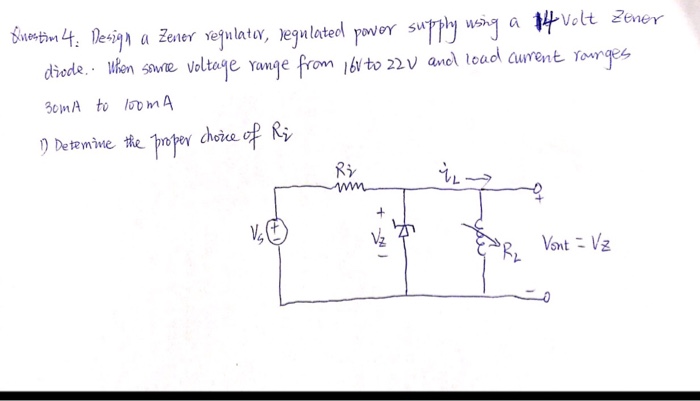 Question 4. Design a Zener regulator, regulated power supply using a 14 Volt Zener
diode. When source voltage range from 16V to 22V and load current ranges
30mA to 100mA
1) Detemine the proper choice of Ri
Ri
iL
+
Vs
+
-
+
Vz
-
RL
Vout = Vz
-